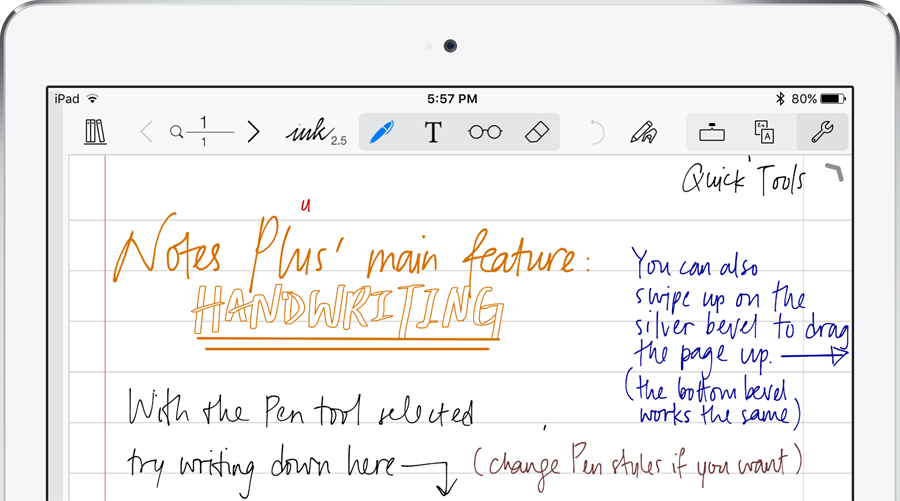 iPad 5:57 PM 80%
1
1
ink 2.5
T
A
Quick Tools
u
Notes Plus' main feature:
HANDWRITING
You can also
swipe up on the
silver bevel to drag
the page up.
(the bottom bevel
works the same)
With the Pen tool selected
try writing down here
(change Pen styles if you want)